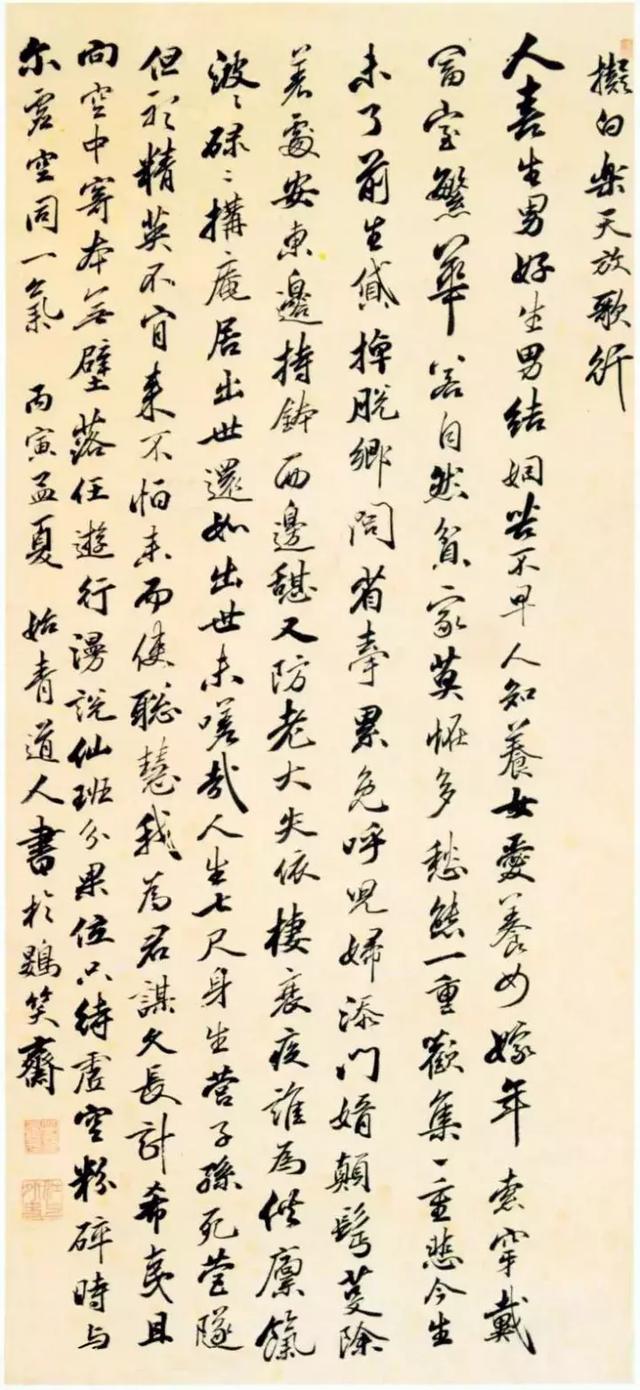 擬白樂天放歌行
人喜生男好生男結姻皆不早人知養女愛養女嫁年索穿戴
富室繁華若自然貧家莫怪多愁態一重歡集一重悲今生
未了前生貸掉脫鄉問省牽累色呼兒婦添門婿顛髩蔓除
差處安東邊持鉢西邊甚又防老大失依棲衰疲誰為供廩餼
波〻碌〻搆庵居出世還如出世未嗟哉人生七尺身生營子孫死營隧
但耗精英不肯来不怕来而使聪慧我為君謀久長計希夷且
向空中寄本无壁落任遊行漫說仙班分果位只待虛空粉碎時与
尔虛空同一氣 丙寅孟夏 始青道人書於鷃笑齋